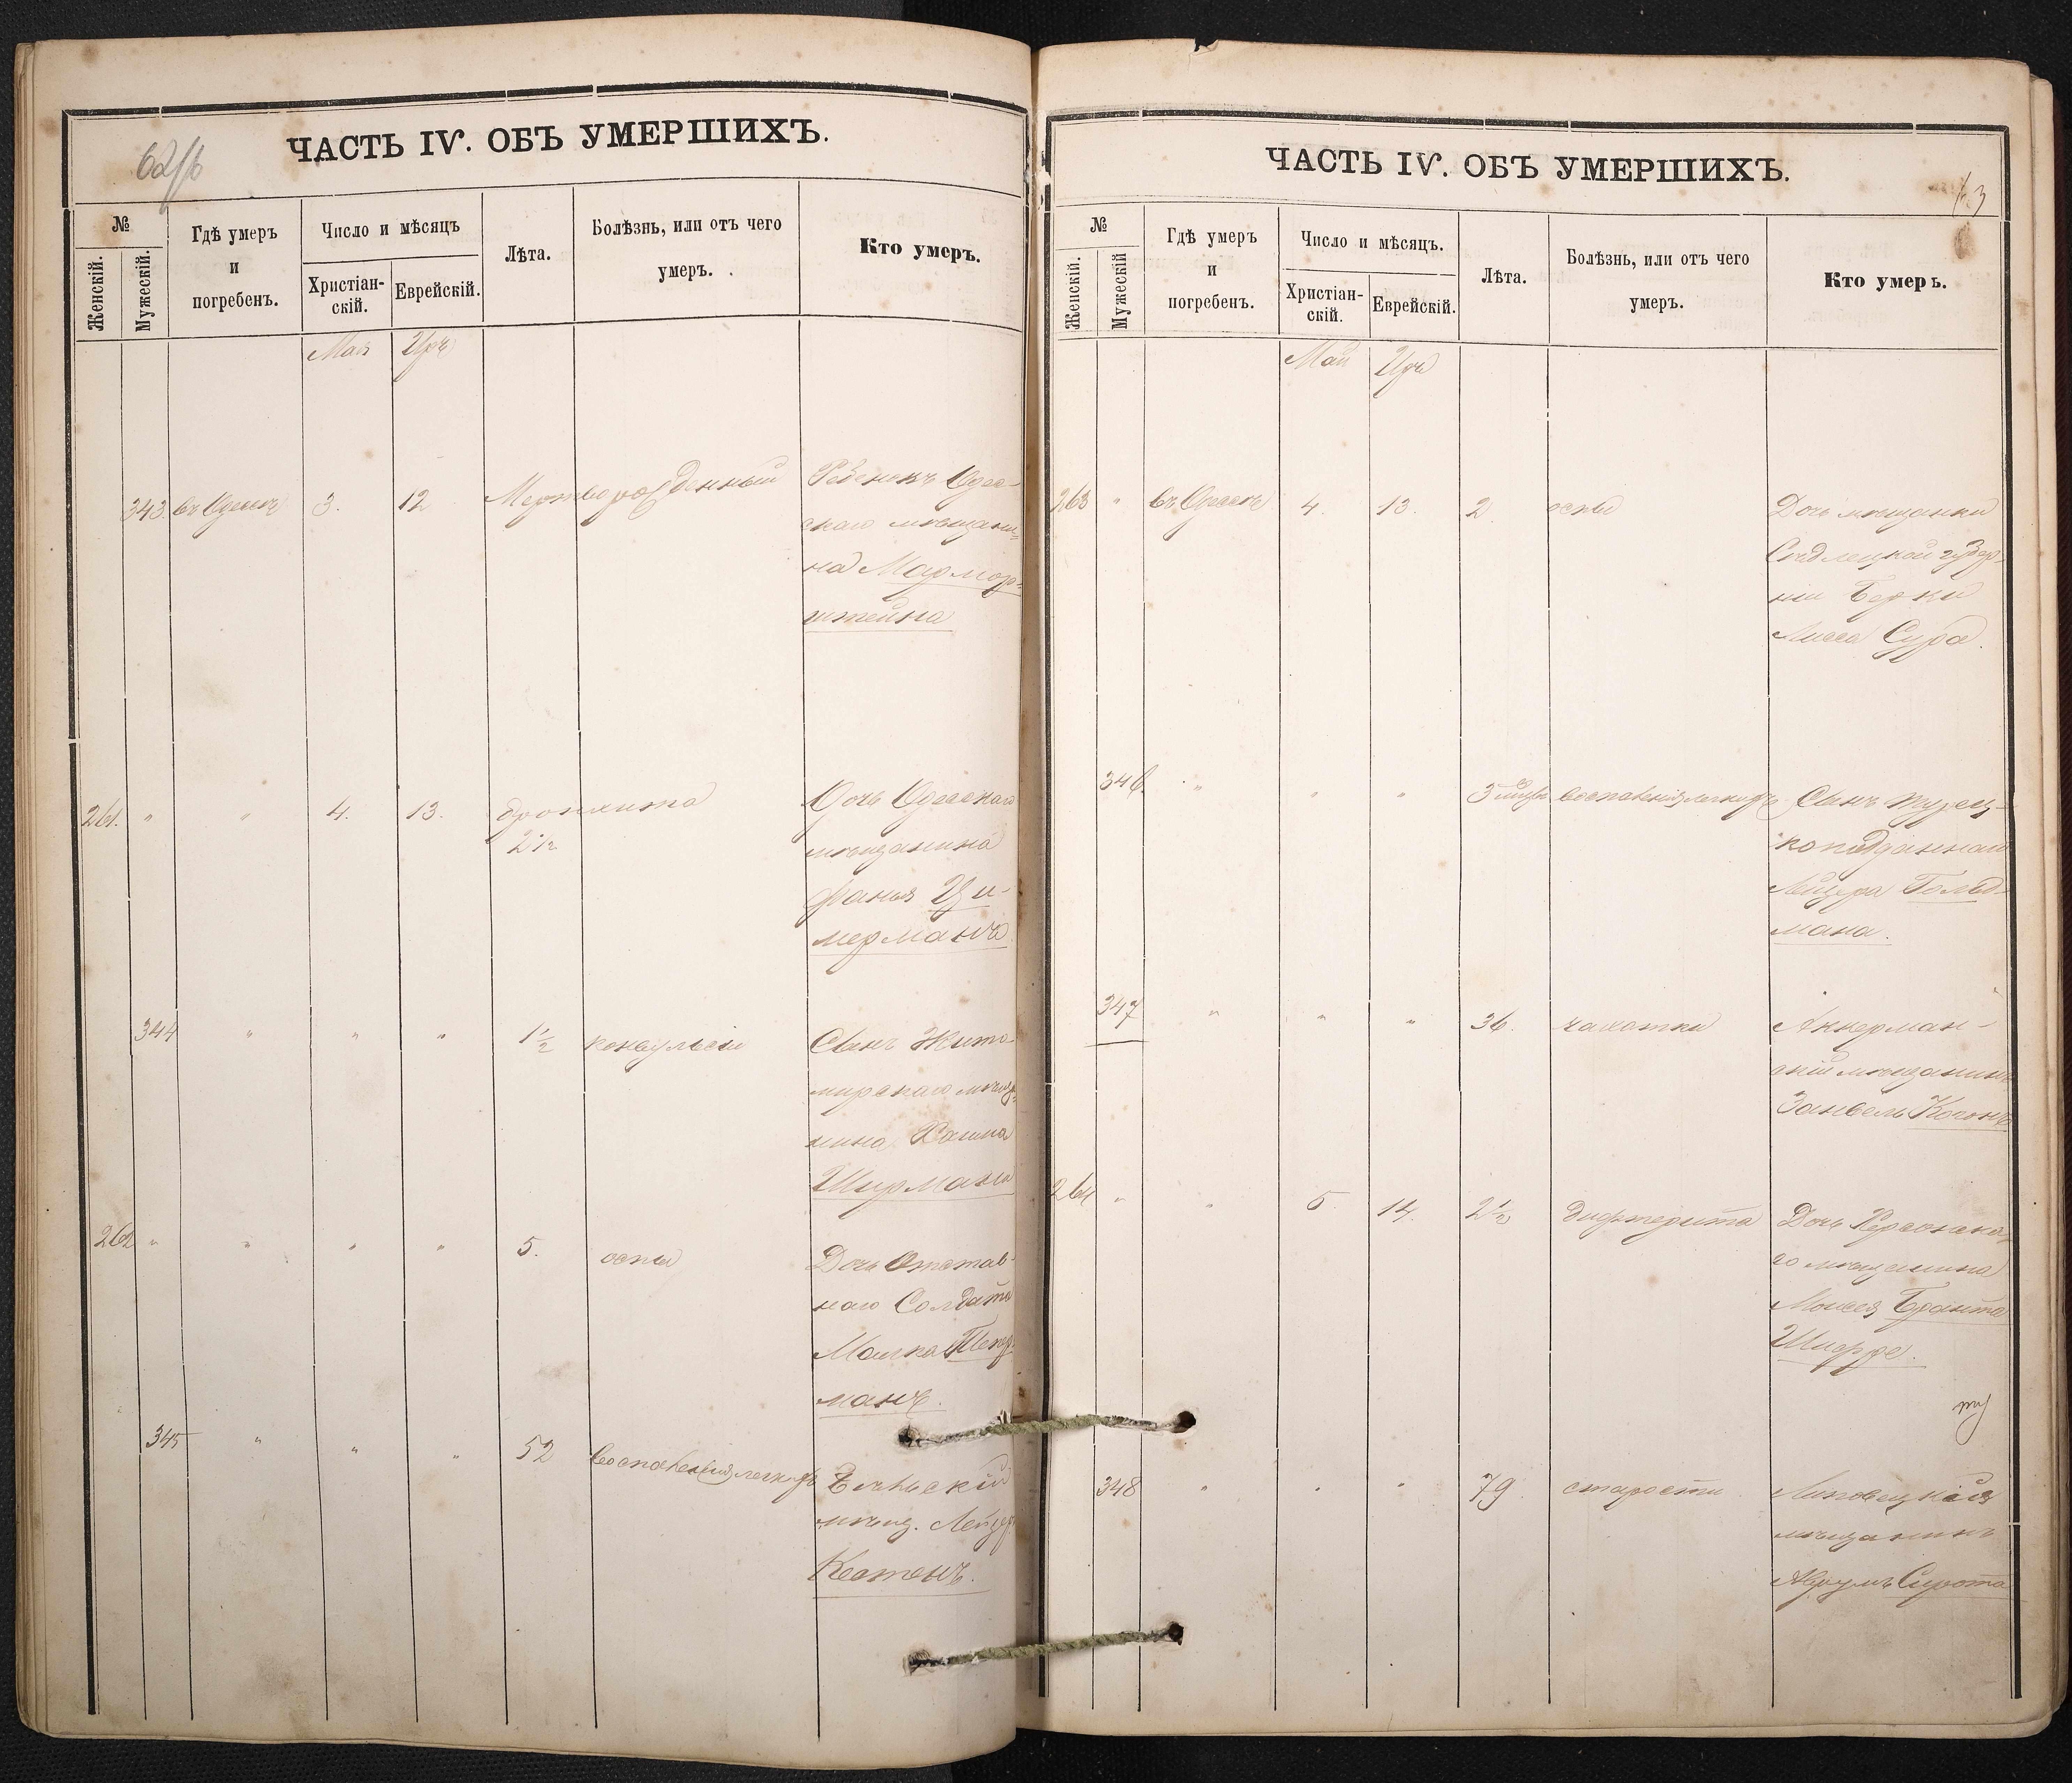 ЧАСТЬ IV. ОБЪ УМЕРШИХЪ.
№
Женскій.
Мужескій.
Гдѣ умеръ
и
погребенъ.
Число и мѣсяцъ
Христіан-
скій.
Еврейскій.
Лѣта.
Болѣзнь, или отъ чего
умеръ.
Кто умеръ.
Май Иръ
343. въ Одессѣ 3. 12 Мертворожденный Ребенокъ Одес-
скаго мѣщани-
на Мармор-
штейна
261. " " 4. 13. бронхита Дочь Одесскаго
2½ мѣщанина
Фаня Ци-
мерманъ
344 " " " 1½ конвульсіи Сынъ Жито-
мирскаго мѣща-
нина
Ширмана
262 " " " " 5. оспы Дочь Отстав-
наго Солдата
Малка
манъ.
345 " " " 52 воспаленія легкихъ
мѣщ. Лейзер
ЧАСТЬ IV. ОБЪ УМЕРШИХЪ.
63
№
Женскій.
Мужескій
Гдѣ умеръ
и
погребенъ.
Число и мѣсяцъ.
Христіан-
скій.
Еврейскій.
Лѣта.
Болѣзнь, или отъ чего
умеръ.
Кто умеръ.
Май Иръ
263 " въ Одессѣ 4. 13. 2. оспы Дочь мѣщанки
Сѣдлецкой губер-
ніи Берки
Сура.
346. " " " 3 воспаленія легкихъ Сынъ турец-
коподданнаго
Гольд-
мана.
347 " " " 36. чахотки Аккерман-
скій мѣщанинъ
Занвель Когонъ
264 " " 5 14. 2½ дифтерита Дочь Херсонска-
го мѣщанина
Моисея
348 " " " 79. старости Липовецкій
мѣщанинъ
Сирота